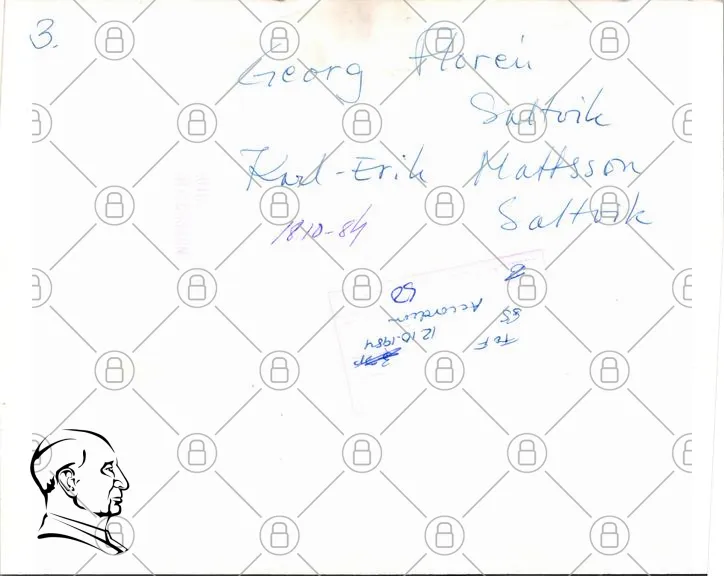 3.
Georg Florén
Saltvik
Karl-Erik Mattsson
Saltvik
18/10-84
12.10.1984
Accordeon